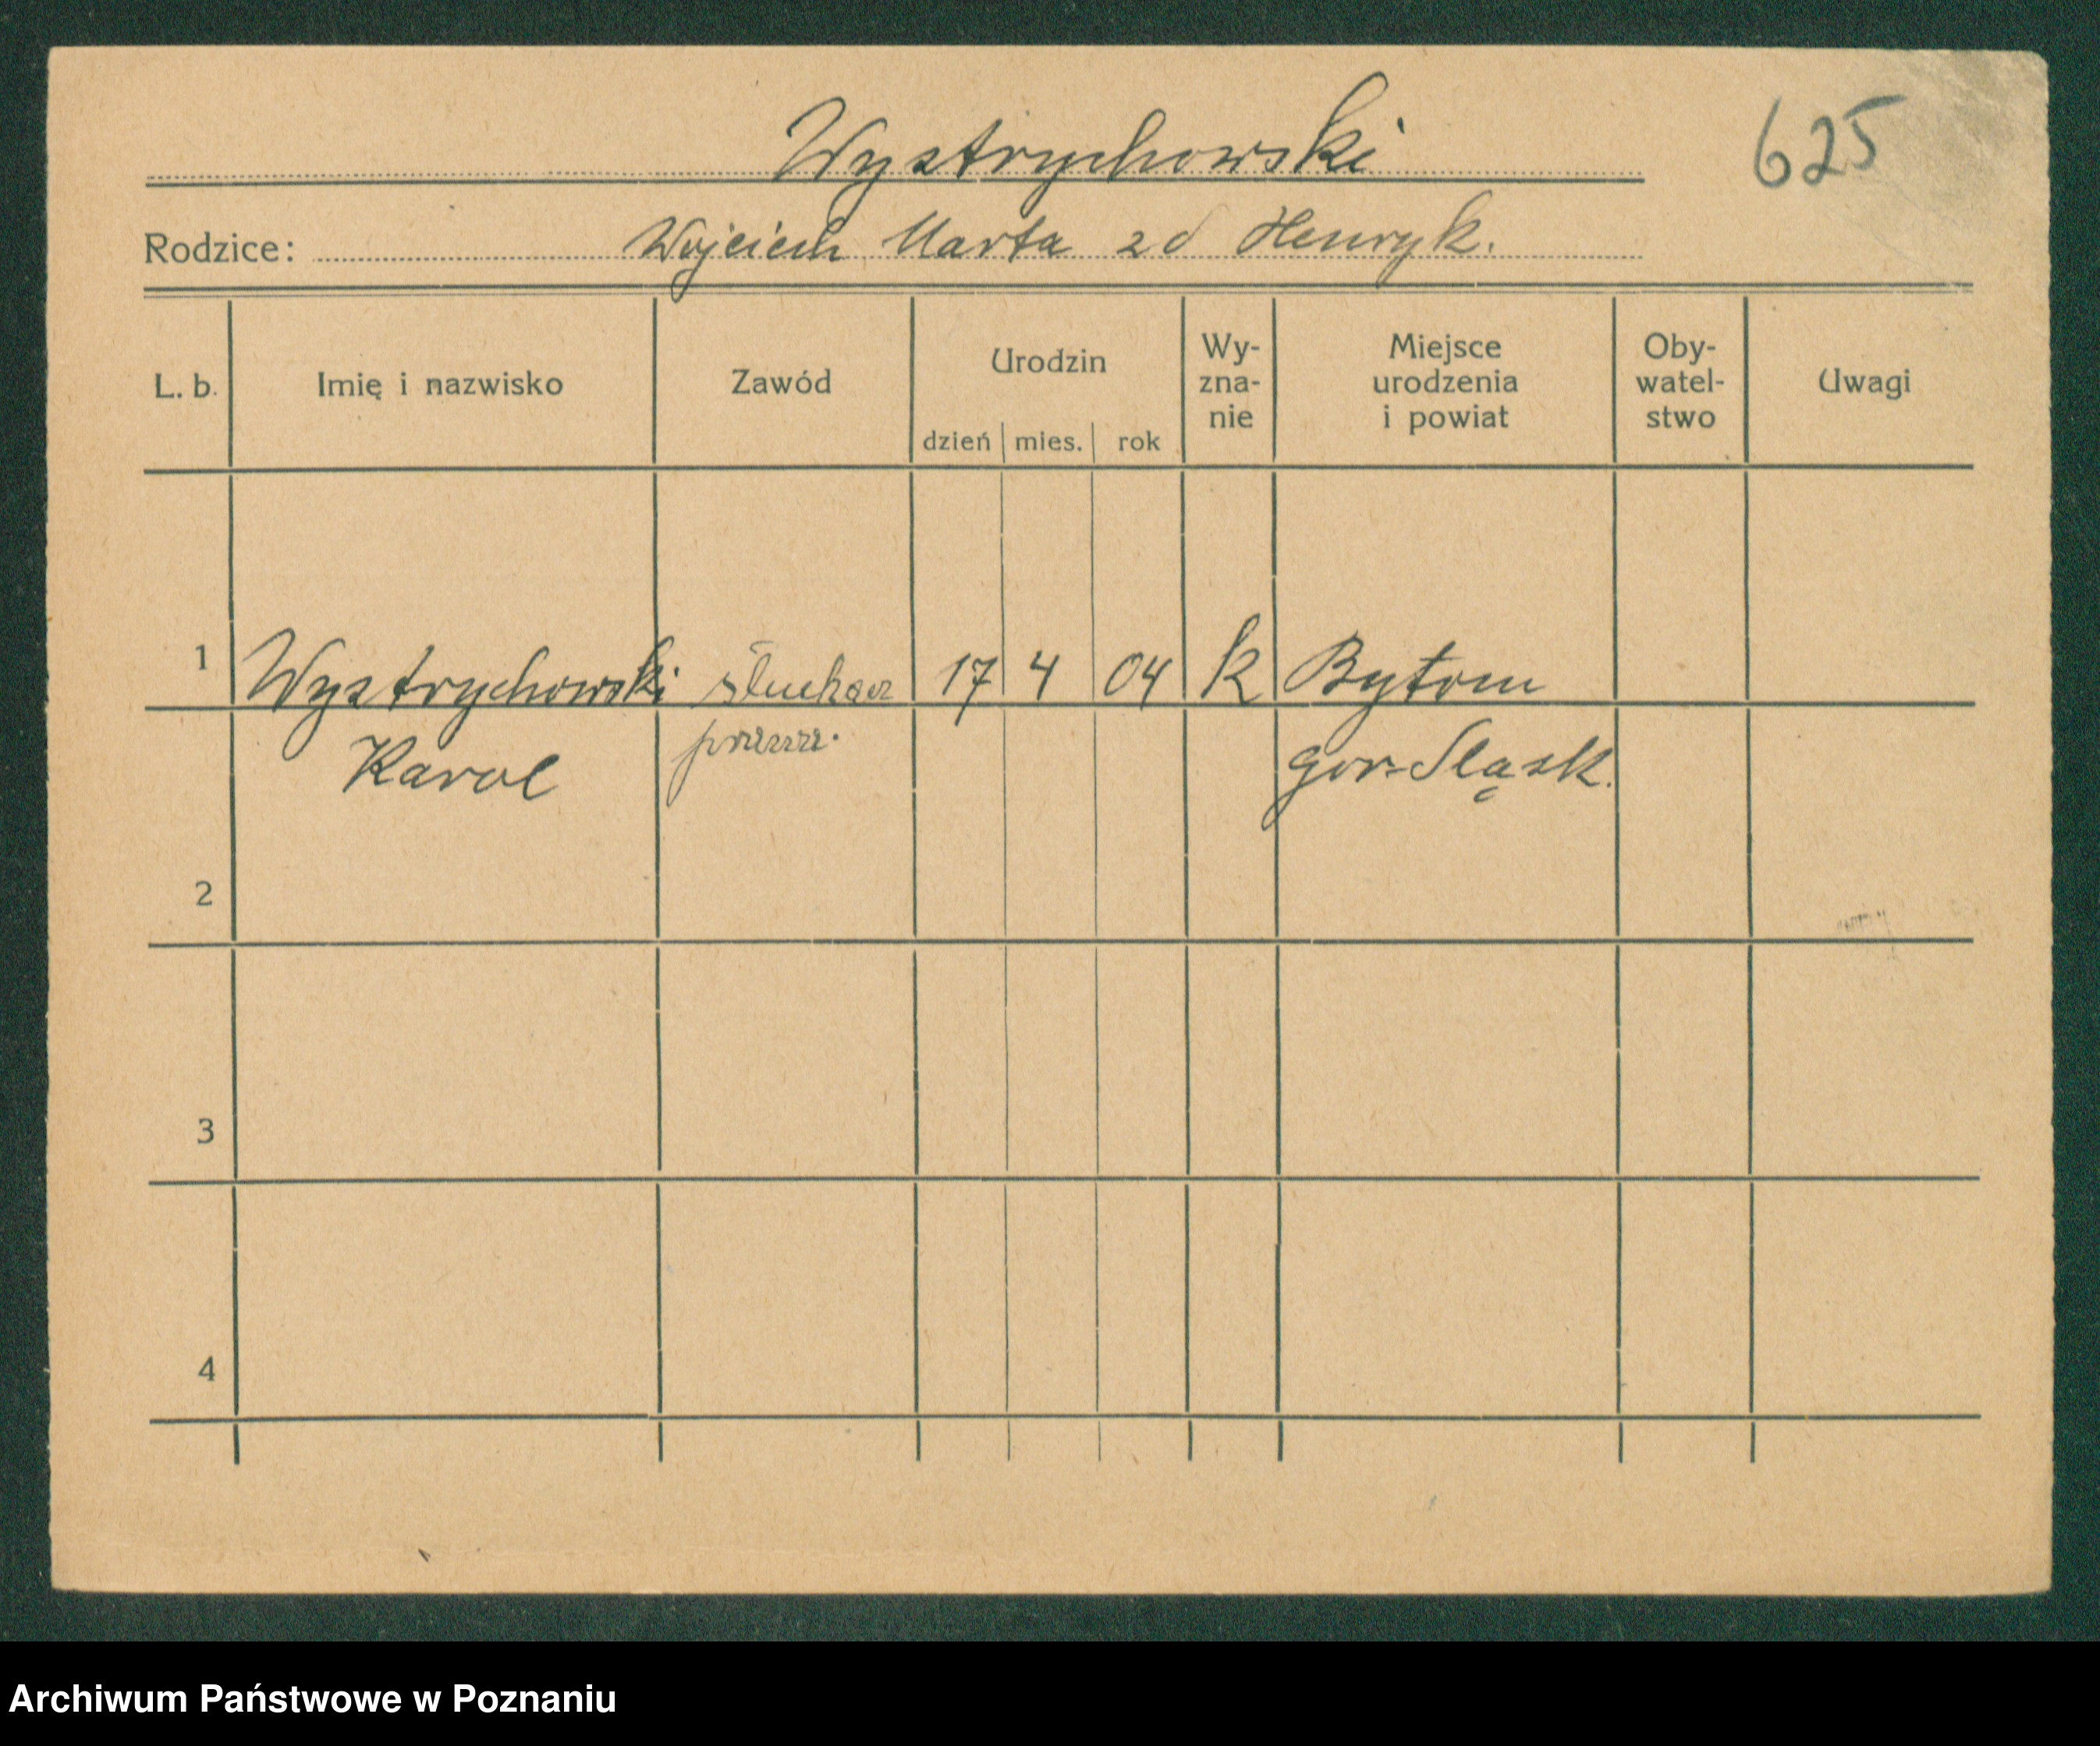 Wystrychowski
625
Rodzice: Wojciech Marta zd Henryk.
L. b. Imię i nazwisko Zawód Urodzin dzień mies. rok Wy-zna-nie Miejsce urodzenia i powiat Oby-watel-stwo Uwagi
1 Wystrychowski słuchacz 17 4 04 k Bytom
Karol gor-Sląsk.
2
3
4
Archiwum Państwowe w Poznaniu